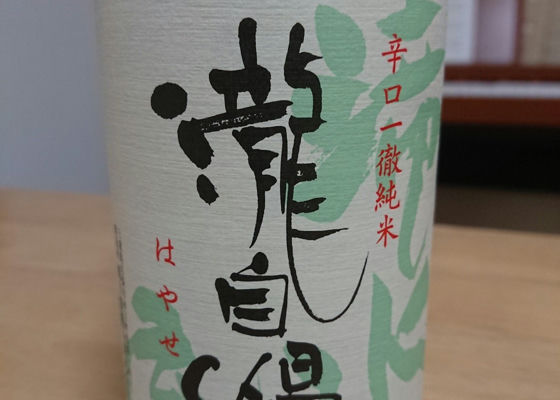 辛口一徹純米
瀧自慢
はやせ